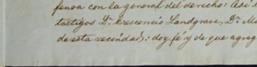 pensa con la general del derecho: Así
testigos D. Crecencio Landgrave, D. M
de esta vecindad: doy fé y de que agreg